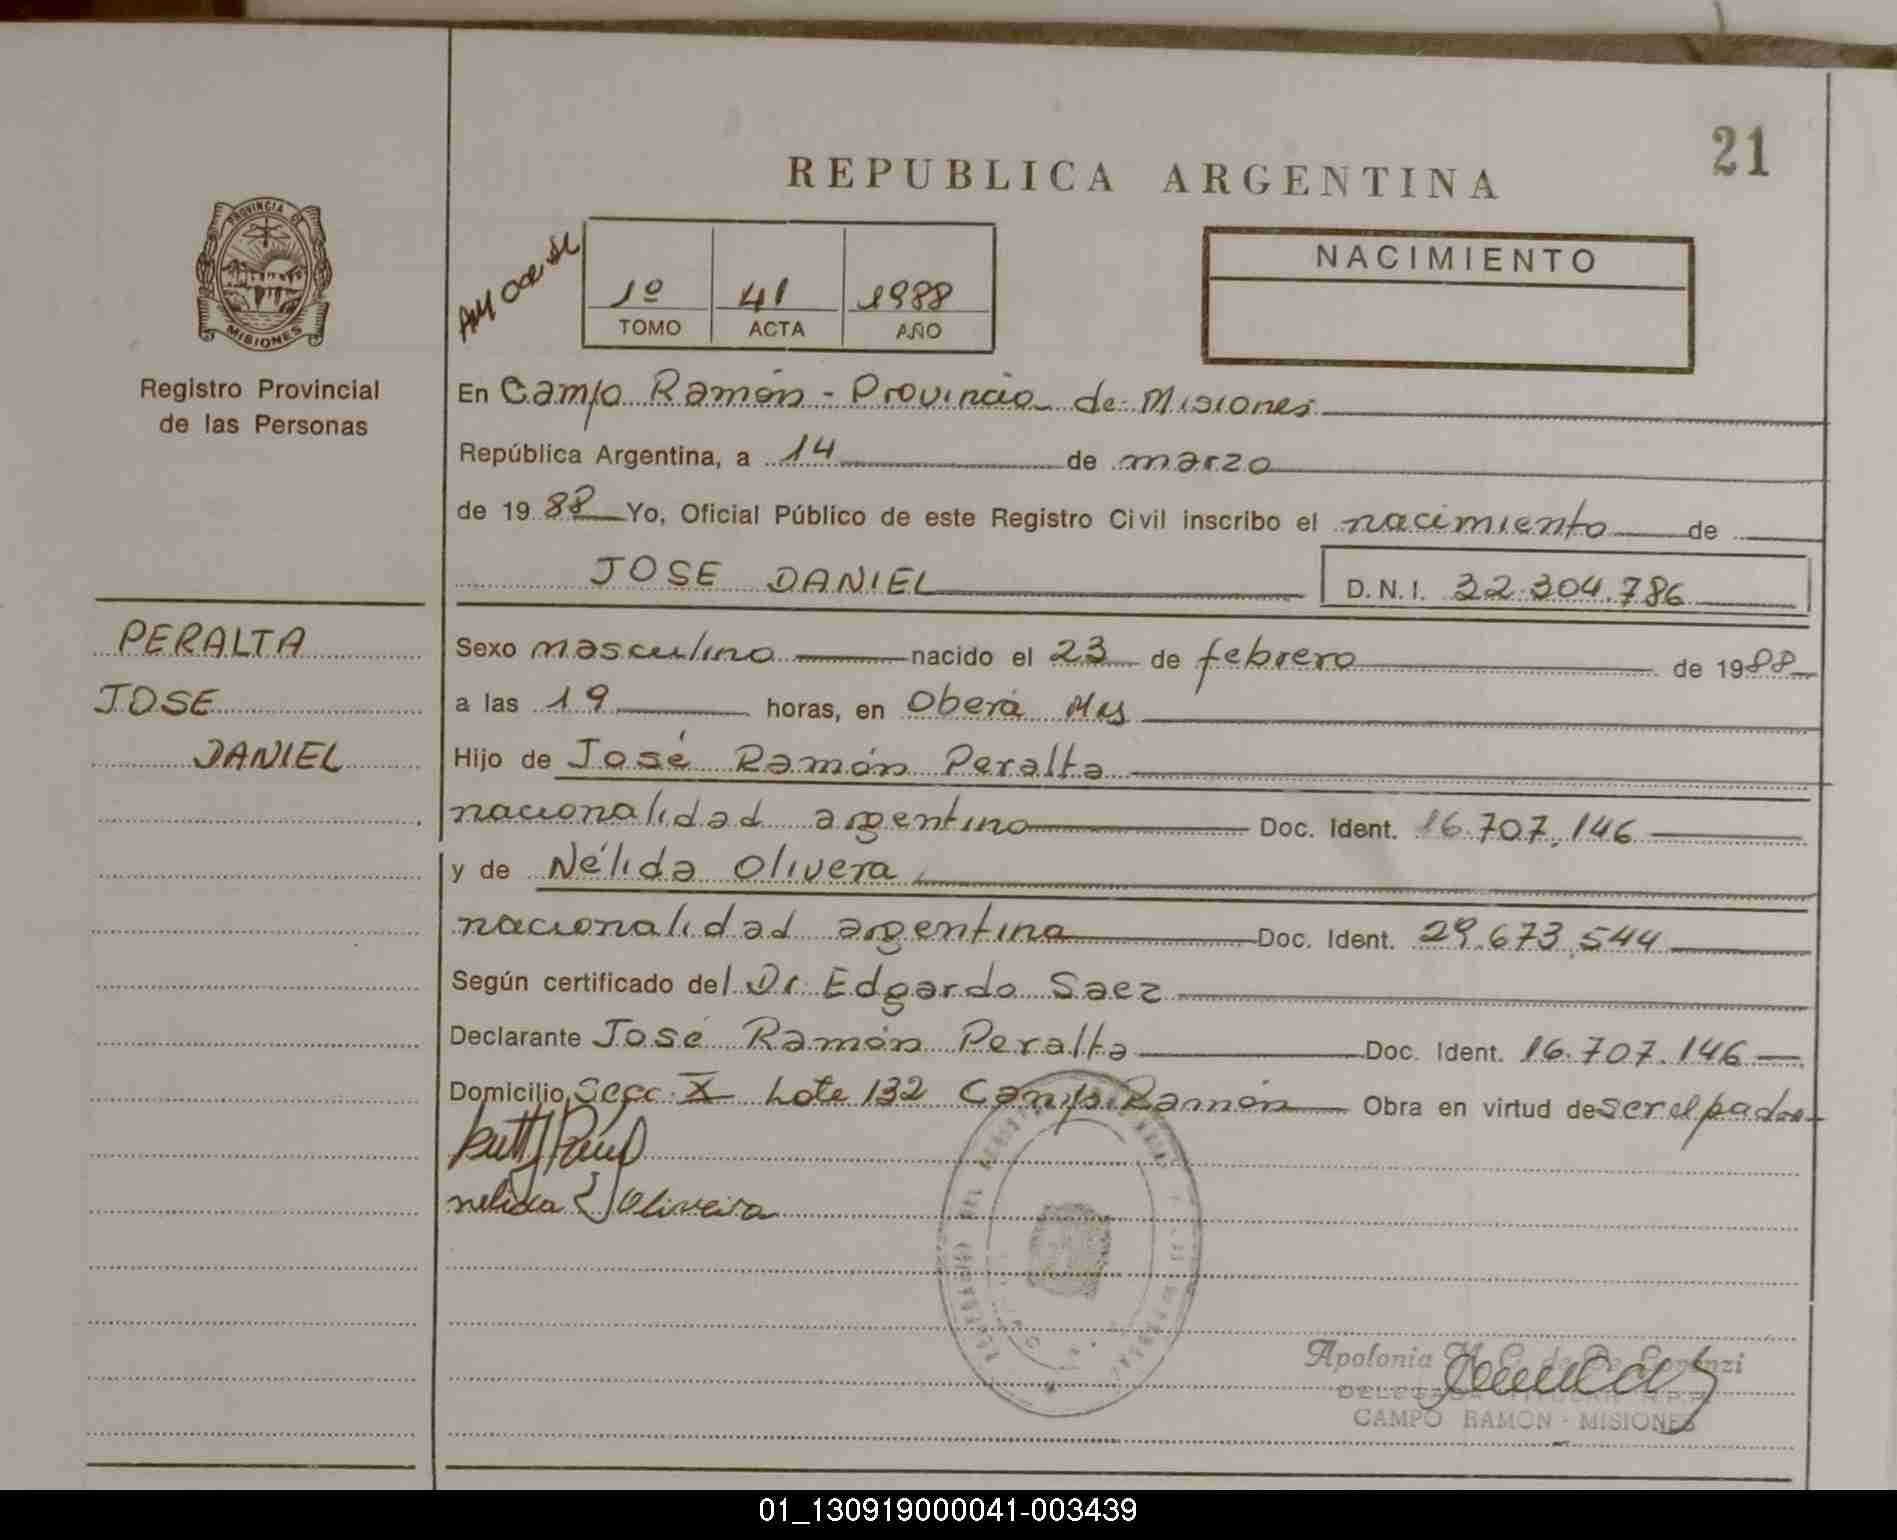 21
REPUBLICA ARGENTINA
PROVINCIA DE
MISIONES
Registro Provincial
de las Personas
1º 41 1988
TOMO ACTA AÑO
NACIMIENTO
En Campo Ramón - Provincia de Misiones
República Argentina, a 14 de marzo
de 1988 Yo, Oficial Público de este Registro Civil inscribo el nacimiento de
JOSE DANIEL D.N.I. 32.304.786
PERALTA
JOSE
DANIEL
Sexo masculino nacido el 23 de febrero de 1988
a las 19 horas, en Oberá Mis
Hijo de José Ramón Peralta
nacionalidad argentino Doc. Ident. 16.707.146
y de Nélida Olivera
nacionalidad argentina Doc. Ident. 29.673.544
Según certificado del Dr. Edgardo Saez
Declarante José Ramón Peralta Doc. Ident. 16.707.146
Domicilio Secc. X Lote 132 Campo Ramón Obra en virtud de ser el padre
nelida Oliveira
Apolonia
CAMPO RAMON - MISIONES
01_130919000041-003439